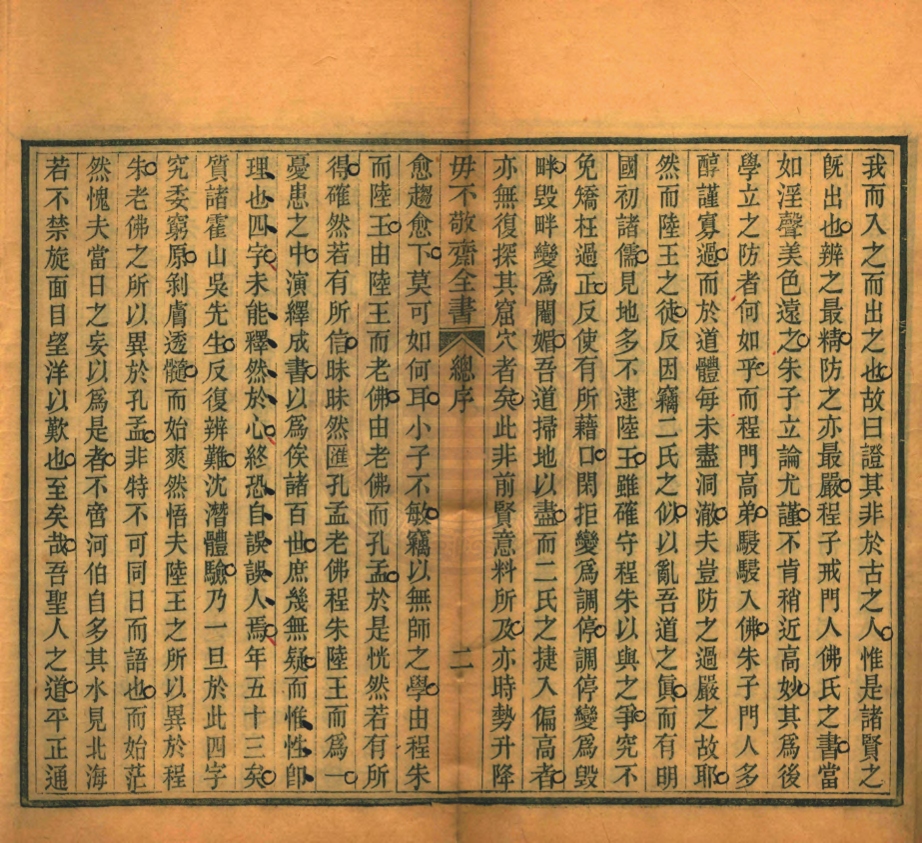 我而入之而出之也故曰證其非於古之人惟是諸賢之
旣出也辨之最精防之亦最嚴程子戒門人佛氏之書當
如淫聲美色遠之朱子立論尤謹不肯稍近高妙其爲後
學立之防者何如乎而程門高弟駸駸入佛朱子門人多
醇謹寡過而於道體每未盡洞澈夫豈防之過嚴之故耶
然而陸王之徒反因竊二氏之似以亂吾道之眞而有明
國初諸儒見地多不逮陸王雖確守程朱以與之爭究不
免矯枉過正反使有所藉口閑拒變爲調停調停變爲毀
畔毀畔變爲閹媚吾道掃地以盡而二氏之捷入偏高者
亦無復探其窟穴者矣此非前賢意料所及亦時勢升降
毋不敬齋全書 總序 二
愈趨愈下莫可如何耳小子不敏竊以無師之學由程朱
而陸王由陸王而老佛由老佛而孔孟於是恍然若有所
得確然若有所信昧昧然匯孔孟老佛程朱陸王而爲一
憂患之中演繹成書以爲俟諸百世庶幾無疑而惟性卽
理也四字未能釋然於心終恐自誤誤人焉年五十三矣
質諸霍山吳先生反復辨難沈潛體驗乃一旦於此四字
究委窮原剝膚透髓而始爽然悟夫陸王之所以異於程
朱老佛之所以異於孔孟非特不可同日而語也而始茫
然愧夫當日之妄以爲是者不啻河伯自多其水見北海
若不禁旋面目望洋以歎也至矣哉吾聖人之道平正通